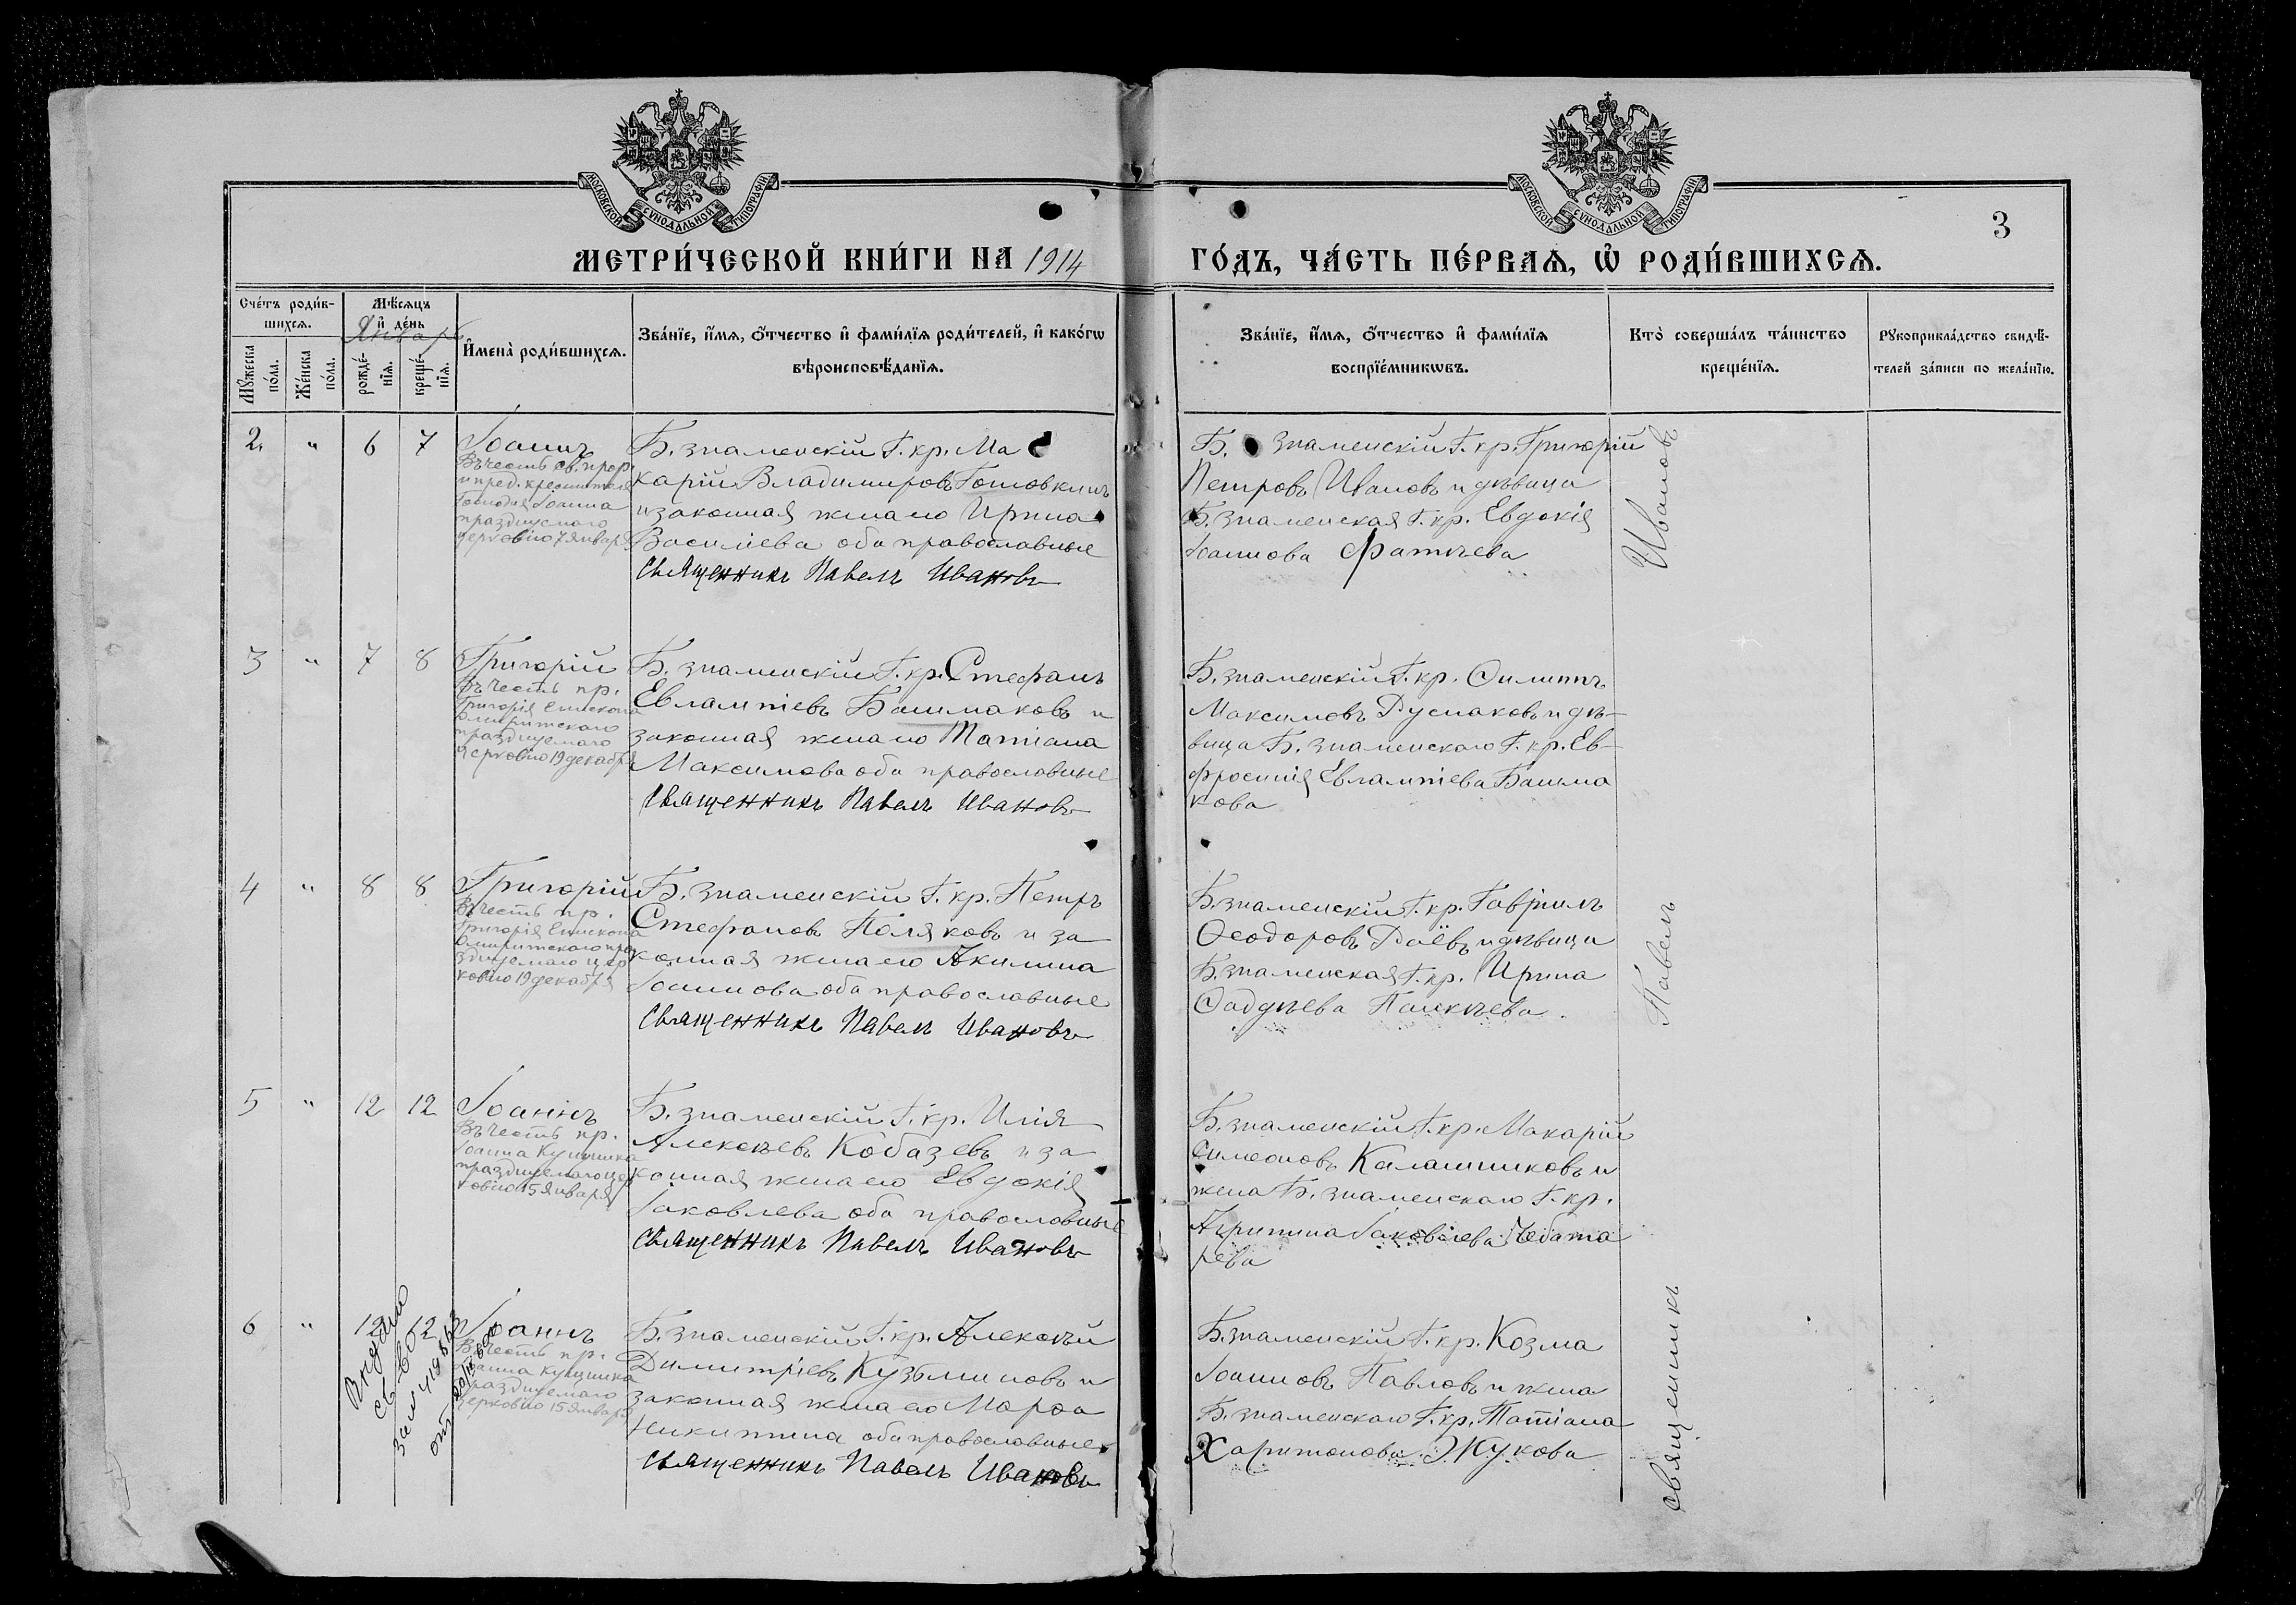 МОСКОВСКОЙ СѴНОДАЛЬНОЙ ТИПОГРАФІИ
МОСКОВСКОЙ СѴНОДАЛЬНОЙ ТИПОГРАФІИ
3
МЕТРИ́ЧЕСКОЙ КНИ́ГИ НА 1914
ГО́ДЪ, ЧА́СТЬ ПЕ́РВАЯ, Ѡ҆ РОДИ́ВШИХСЯ.
Сче́тъ роди́в-
шихся.
Мѣ́сяцъ
и҆ де́нь
Январь
Мꙋ́жеска
по́ла.
Же́нска
по́ла.
рожде́-
нїя.
креще́-
нїя.
И҆мена̀ роди́вшихся.
Зва́нїе, и҆́мя, ѻ҆́тчество и҆ фами́лїя роди́телей, и҆ како́гѡ
вѣроисповѣ́данїя.
Зва́нїе, и҆́мя, ѻ҆́тчество и҆ фами́лїя
воспрїе́мникѡвъ.
Кто̀ соверша́лъ та́инство
креще́нїя.
Рꙋкоприкла́дство свидѣ́-
телей за́писи по жела́нїю.
2. " 6 7 Іоаннъ
Въ честь св. прор.
и пред. крестителя
Господня Іоанна
празднуемаго
церковію 7 января
Б. знаменскій Г. кр. Ма
карій Владиміровъ Головкинъ
и законная жена его Ирина
Василіева оба православные
Священникъ Павелъ Ивановъ
Б. знаменскій Г. кр. Григорій
Петровъ Ивановъ и дѣвица
Б. знаменская Г. кр. Евдокія
Іоаннова Фатѣева
3 " 7 8 Григорій
Въ честь пр.
Григорія Епископа
Омиритскаго
празднуемаго
церковію 19 декабря
Б. знаменскій Г. кр. Стефанъ
Евлампіевъ Башмаковъ и
законная жена его Татіана
Максимова оба православные
Священникъ Павелъ Ивановъ
Б. знаменскій Г. кр. Филиппъ
Максимовъ Русмаковъ и дѣ-
вица Б. знаменскаго Г. кр. Ев-
фросинія Евлампіева Башма
кова
4 " 8 8 Григорій
Въ честь пр.
Григорія Епископа
Омиритскаго пра
зднуемаго цер
ковію 19 декабря
Б. знаменскій Г. кр. Петръ
Стефановъ Поляковъ и за
конная жена его Акилина
Іоаннова оба православные
Священникъ Павелъ Ивановъ
Б. знаменскій Г. кр. Гавріилъ
Ѳеодоровъ Раёвъ и дѣвица
Б. знаменская Г. кр. Ирина
Фаддѣева
5 " 12 12 Іоаннъ
Въ честь пр.
Іоанна Кущника
празднуемаго цер
ковію 15 января
Б. знаменскій Г. кр. Илія
Алексѣевъ Кобазевъ и за
конная жена его Евдокія
Іаковлева оба православные
Священникъ Павелъ Ивановъ
Б. знаменскій Г. кр. Макарій
Симеоновъ Калашниковъ и
жена Б. знаменскаго Г. кр.
Агрипина Іаковлева Чебота
рева
6 " 12 12 Іоаннъ
Въ честь пр.
Іоанна Кущника
празднуемаго
церковію 15 января
Выдано
св-во
Б. знаменскій Г. кр. Алексѣй
Димитріевъ Кузьминовъ и
законная жена его Марѳа
Никитина оба православные
Священникъ Павелъ Ивановъ
Б. знаменскій Г. кр. Козма
Іоанновъ Павловъ и жена
Б. знаменскаго Г. кр. Татіана
Харитонова Жукова
Священникъ
Павелъ
Ивановъ